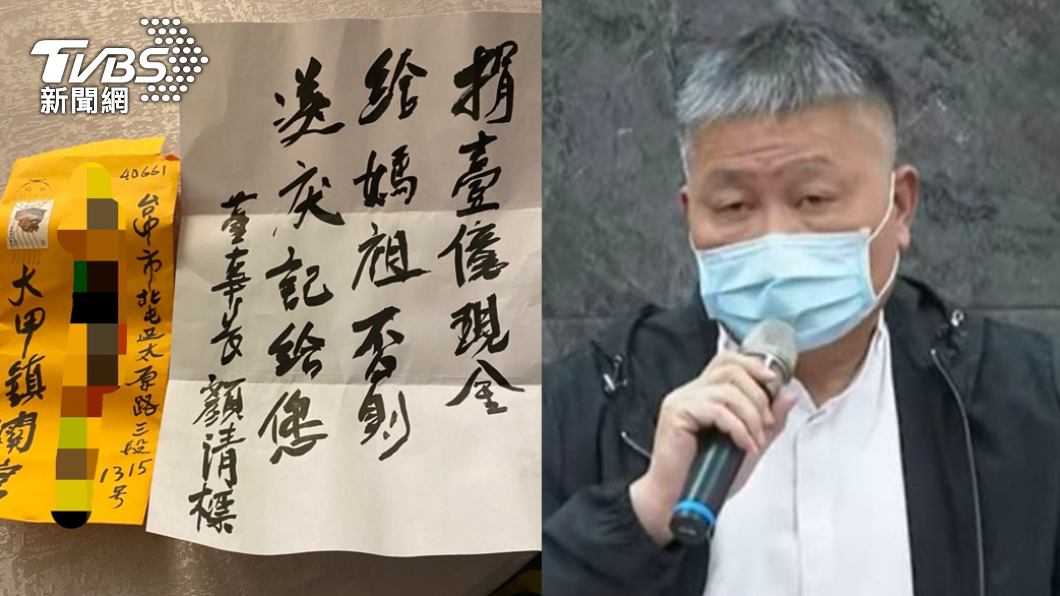 TVBS
新聞網
捐壹億現金
給媽祖否則
記給您
董事長 顏清標
40661
台中市北屯区太原路三段
1315
号
大甲鎮瀾宮